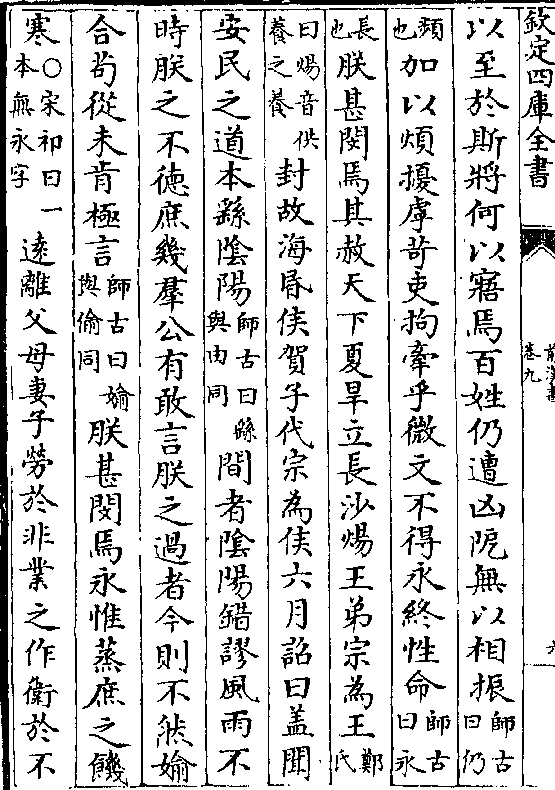 欽定四庫全書
前漢書
卷九
九
以至於斯將何以寤焉百姓仍遭凶阨無以相振師古曰仍
頻也加以煩擾虖苛吏拘牽乎微文不得永終性命師古曰永
長也朕甚閔焉其赦天下夏旱立長沙煬王弟宗為王鄭氏
曰煬音供養之養封故海昏侯賀子代宗為侯六月詔曰盖聞
安民之道本繇陰陽師古曰繇與由同間者陰陽錯謬風雨不
時朕之不德庶幾羣公有敢言朕之過者今則不然媮
合茍從未肯極言師古曰媮與偷同朕甚閔焉永惟蒸庶之饑
寒○宋祁曰一本無永字逺離父母妻子勞於非業之作衛於不